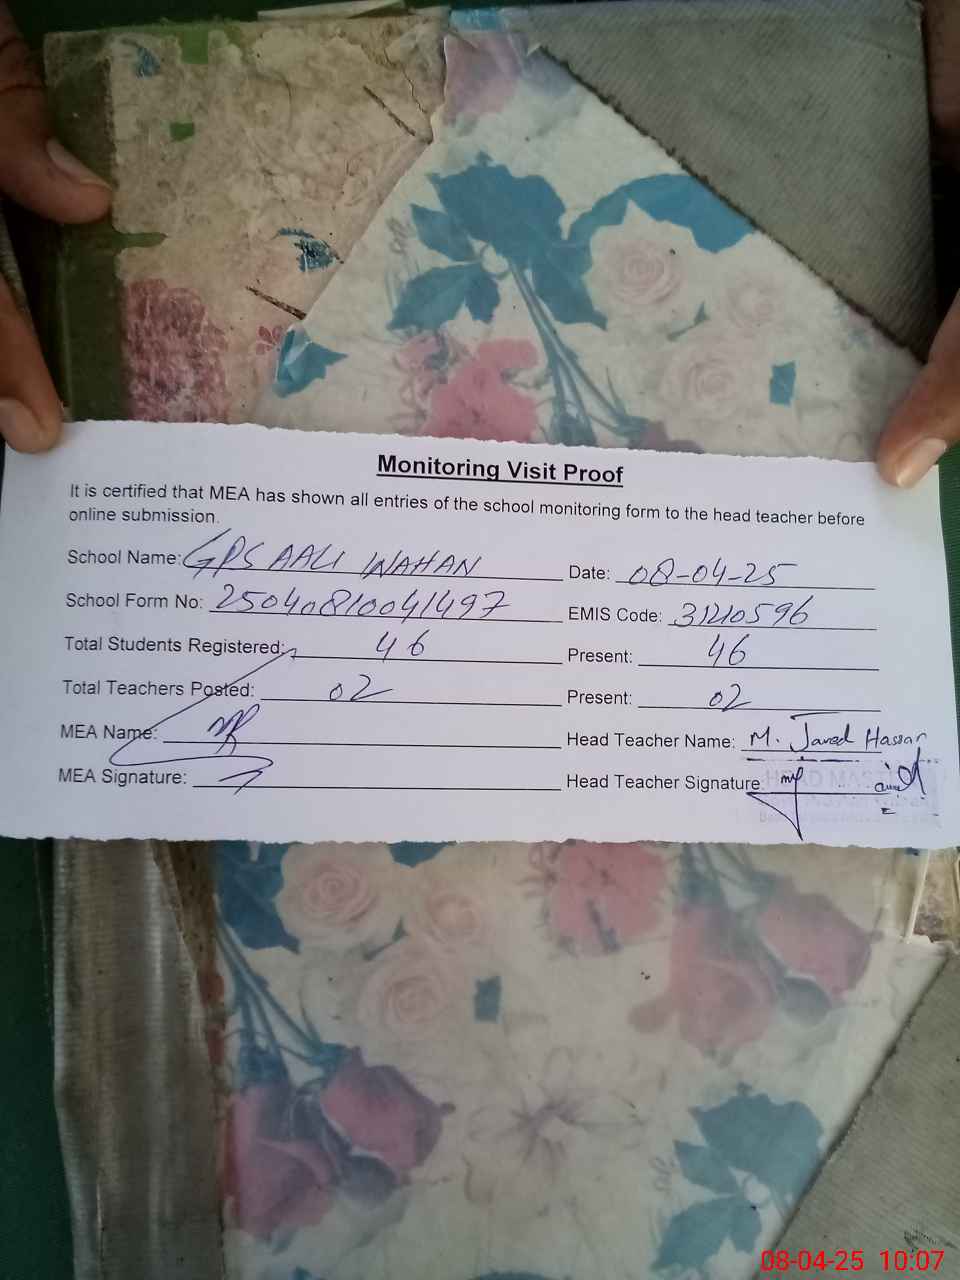 Monitoring Visit Proof
It is certified that MEA has shown all entries of the school monitoring form to the head teacher before
online submission.
School Name: GPS AALI WAHAN Date: 08-04-25
School Form No: 25040810041497 EMIS Code: 31210596
Total Students Registered: 46 Present: 46
Total Teachers Posted: 02 Present: 02
MEA Name: Head Teacher Name: M. Javed Hassan
MEA Signature: Head Teacher Signature:
08-04-25 10:07